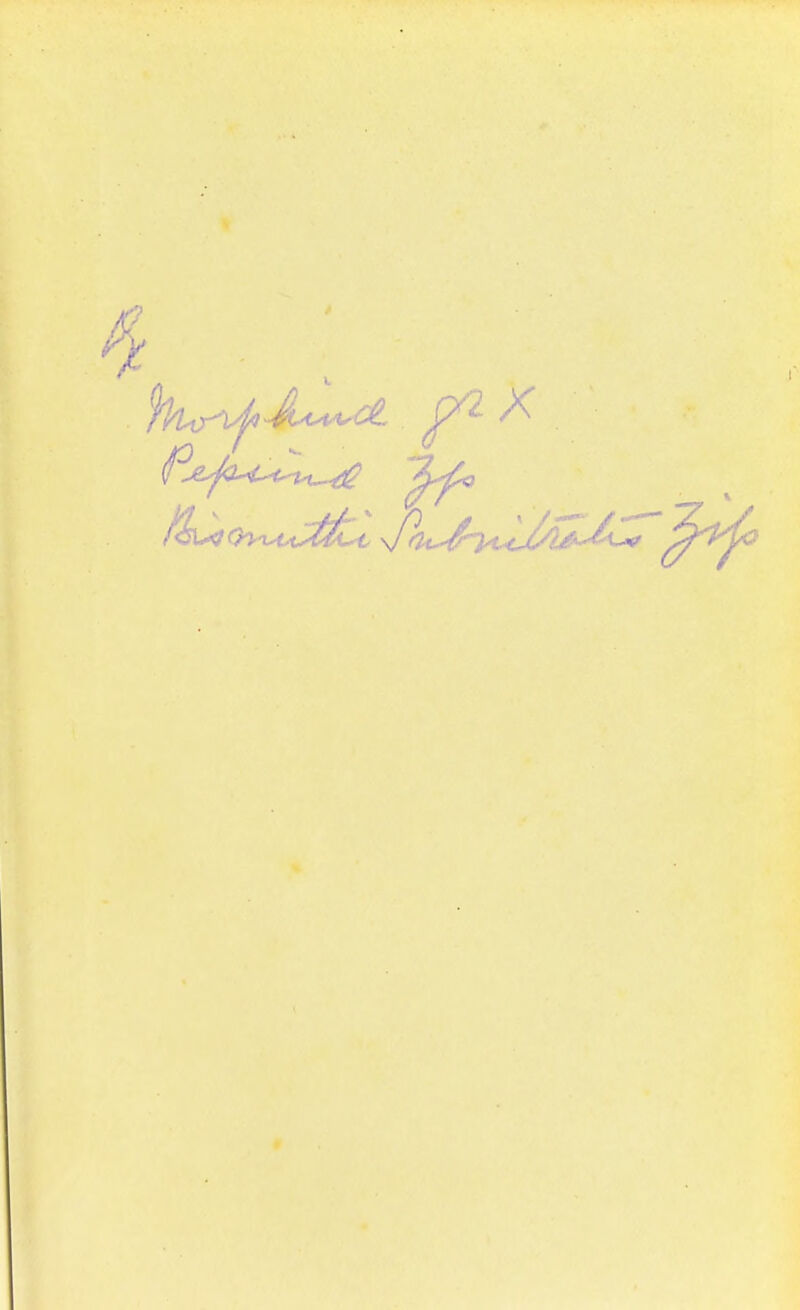 ℞
Morphinæ gr X
Pepsinæ ʒſs
Bismuthi Subnitratis ʒiſs